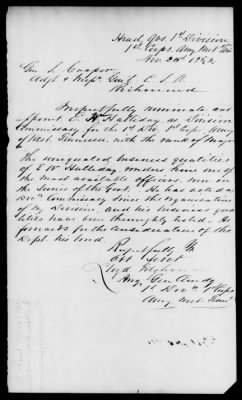 Head Qrs. 1st Division
1st Corps, Army West Tenn
Nov. 20th 1862
Gen. S. Cooper
Adjt & Insp. Genl. C. S. A.
Richmond
I respectfully nominate and
appoint E. W. Halliday as Division
Commissary for the 1st Div. 1st Corps Army
of West Tennessee, with the rank of Major
The unequaled business qualities
of E W Halliday renders him one of
the most available officers now in
the Service of the Govt. He has acted as
Divn Commissary since the organization
of my Division, and his business qua-
lities have been thoroughly tested. He
forwards for the consideration of the
Dept. his bond.
Respectfully Yr
Obt Servt
Lloyd Tilghman
Brig. Gen Comdg
1st Divn 1st Corps
Army West Tenn